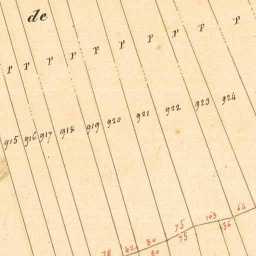 de
P P P P P P P P P P
915 916 917 918 919 920 921 922 923 924
78 82 80 75 103 64
80 75 56